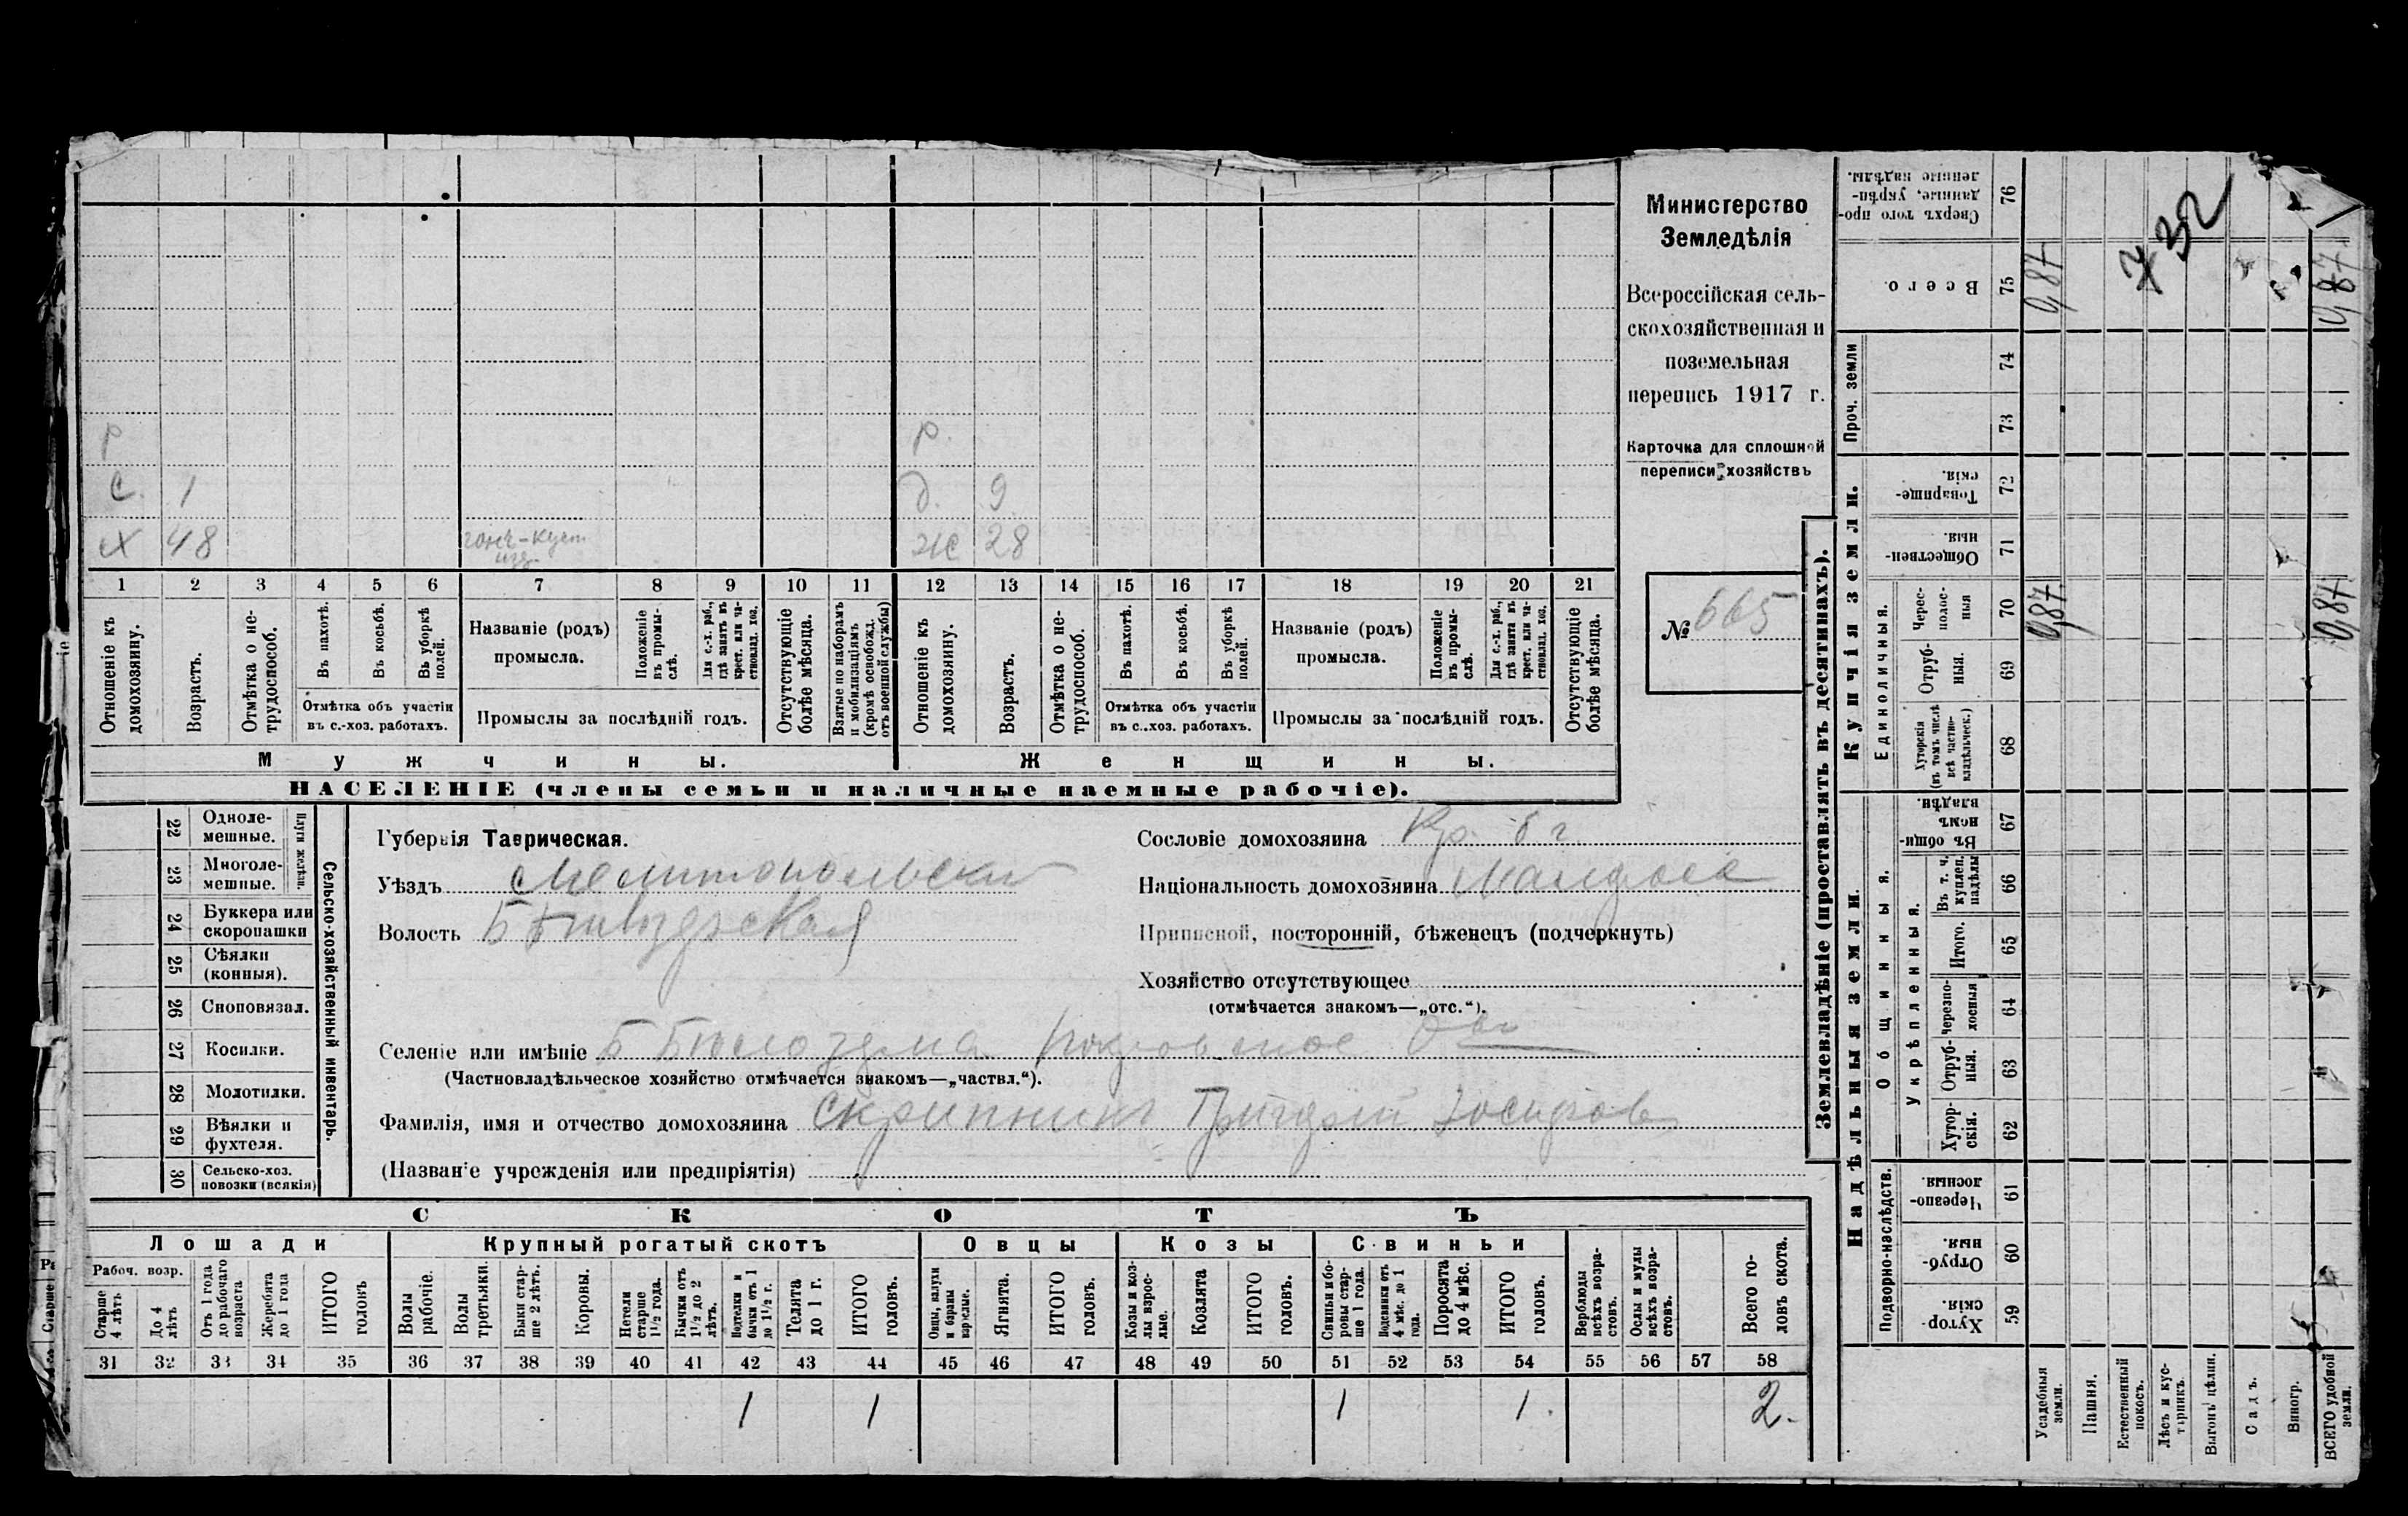 Министерство
Земледѣлія
Всероссійская сель-
скохозяйственная и
поземельная
перепись 1917 г.
Карточка для сплошной
переписи хозяйствъ
№ 665
Р Р.
С. 1 д. 9
Х 48 гонч-куст Ж 28
изд
1 2 3 4 5 6 7 8 9 10 11 12 13 14 15 16 17 18 19 20 21
Отношеніе къ домохозяину.
Возрастъ.
Отмѣтка о не-трудоспособ.
Въ пахотѣ.
Въ косьбѣ.
Въ уборкѣ полей.
Отмѣтка объ участіи
въ с.-хоз. работахъ.
Названіе (родъ)
промысла.
Положеніе въ промы-слѣ.
Для с.-х. раб., гдѣ занятъ въ крест. или ча-стновлад. хоз.
Промыслы за послѣдній годъ.
Отсутствующіе болѣе мѣсяца.
Взятые по наборамъ и мобилизаціямъ (кромѣ освобожд. отъ военной службы)
Отношеніе къ домохозяину.
Возрастъ.
Отмѣтка о не-трудоспособ.
Въ пахотѣ.
Въ косьбѣ.
Въ уборкѣ полей.
Отмѣтка объ участіи
въ с.-хоз. работахъ.
Названіе (родъ)
промысла.
Положеніе въ промы-слѣ.
Для с.-х. раб., гдѣ занята въ крест. или ча-стновлад. хоз.
Промыслы за послѣдній годъ.
Отсутствующіе болѣе мѣсяца.
Мужчины. Женщины.
НАСЕЛЕНІЕ (члены семьи и наличные наемные рабочіе).
Сельско-хозяйственный инвентарь.
Плуги желѣзн.
22 Одноле-мешные.
23 Многоле-мешные.
24 Буккера или скоропашки
25 Сѣялки (конныя).
26 Сноповязал.
27 Косилки.
28 Молотилки.
29 Вѣялки и фухтеля.
30 Сельско-хоз. повозки (всякія)
Губернія Таврическая.
Уѣздъ Мелитопольский
Волость
Сословіе домохозяина Кр. б г.
Національность домохозяина Малоросс
Приписной, посторонній, бѣженецъ (подчеркнуть)
Хозяйство отсутствующее
(отмѣчается знакомъ—„отс.“).
Селеніе или имѣніе Б Покровское
(Частновладѣльческое хозяйство отмѣчается знакомъ—„частвл.“).
Фамилія, имя и отчество домохозяина Скрипник Григорій Іосифов
(Названіе учрежденія или предпріятія)
СКОТЪ
Лошади Крупный рогатый скотъ Овцы Козы Свиньи
Рабоч. возр.
Старше 4 лѣтъ
До 4 лѣтъ
Отъ 1 года до рабочаго возраста
Жеребята до 1 года
ИТОГО головъ
Волы рабочіе.
Волы третьяки.
Быки стар-ше 2 лѣтъ.
Коровы.
Нетели старше 1½ года.
Бычки отъ 1½ до 2 лѣтъ.
Подтелки и бычки отъ 1 до 1½ г.
Телята до 1 г.
ИТОГО головъ.
Овцы, валухи и бараны взрослые.
Ягнята.
ИТОГО головъ.
Козы и коз-лы взрос-лые.
Козлята
ИТОГО головъ.
Свиньи и бо-ровы стар-ше 1 года.
Подсвинки отъ 4 мѣс. до 1 года.
Поросята до 4 мѣс.
ИТОГО головъ.
Верблюды всѣхъ возра-стовъ.
Ослы и мулы всѣхъ возра-стовъ.
Всего го-ловъ скота.
31 32 33 34 35 36 37 38 39 40 41 42 43 44 45 46 47 48 49 50 51 52 53 54 55 56 57 58
1 1 1 1. 2.
Землевладѣніе (проставлять въ десятинахъ).
732
Сверхъ того про-данные, укрѣп-ленные надѣлы. 76
Всего. 75 0,87 0,87
Проч. земли 74
73
Купчія земли.
Товарище-скія. 72
Обществен-ныя. 71
Единоличныя.
Черес-полос-ныя 70 0,87 0,87
Отруб-ныя. 69
Хуторскія (въ томъ числѣ всѣ частно-владѣльческ.) 68
Надѣльныя земли.
Общинныя.
Въ общи-номъ владѣн. 67
Укрѣпленныя.
Въ т. ч. куплен. надѣлы 66
Итого. 65
Черезпо-лосныя 64
Отруб-ныя. 63
Хутор-скія. 62
Подворно-наслѣдств.
Черезпо-лосныя. 61
Отруб-ныя. 60
Хутор-скія. 59
Усадебныя земли.
Пашня.
Естественный покосъ.
Лѣсъ и кус-тарникъ.
Выгонъ цѣлин.
Садъ.
Виногр.
ВСЕГО удобной земли.